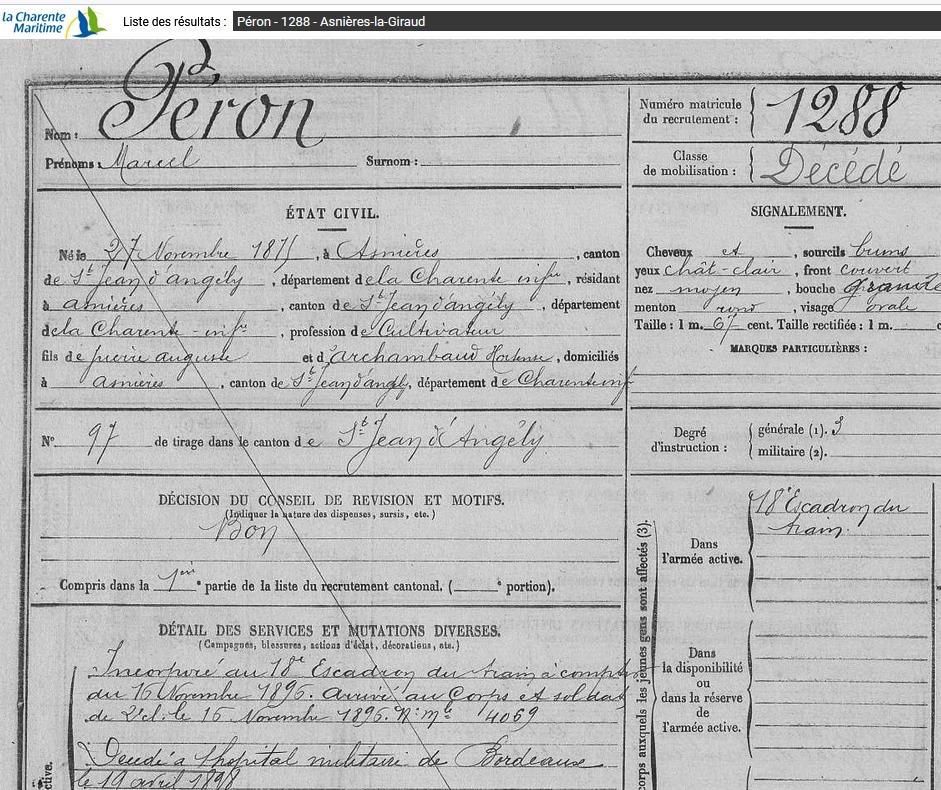 la Charente
Maritime
Liste des résultats :
Péron - 1288 - Asnières-la-Giraud
Nom : Péron
Prénoms : Marcel Surnom :
Numéro matricule
du recrutement : 1288
Classe
de mobilisation : Décédé
ÉTAT CIVIL.
Né le 27 Novembre 1875, à Asnières, canton
de St Jean d'angély, département de la Charente infre, résidant
à asnières, canton de St Jean d'angély, département
de la Charente-infre, profession de Cultivateur
fils de pierre auguste et d'archambaud Hortense, domiciliés
à asnières, canton de St Jean d'angély, département de Charente inf
N° 97 de tirage dans le canton de St Jean d'Angély
SIGNALEMENT.
Cheveux et, sourcils bruns
yeux chât-clair, front couvert
nez moyen, bouche grande
menton rond, visage ovale
Taille : 1 m. 67 cent. Taille rectifiée : 1 m. c
MARQUES PARTICULIÈRES :
Degré
d'instruction :
générale (1). 3
militaire (2).
DÉCISION DU CONSEIL DE REVISION ET MOTIFS.
(Indiquer la nature des dispenses, sursis, etc.)
Bon
Compris dans la 1ère partie de la liste du recrutement cantonal. ( portion).
DÉTAIL DES SERVICES ET MUTATIONS DIVERSES.
(Campagnes, blessures, actions d'éclat, décorations, etc.)
Incorporé au 18e Escadron du train à compter
du 16 Novembre 1896. arrivé au Corps et soldat
de 2e cl. le 16 Novembre 1896. N° mle 4069
Décédé à l'hopital militaire de Bordeaux
le 19 avril 1898
ctive.
corps auxquels les jeunes gens sont affectés (3).
Dans
l'armée active.
18e Escadron du
train.
Dans
la disponibilité
ou
dans la réserve
de
l'armée active.